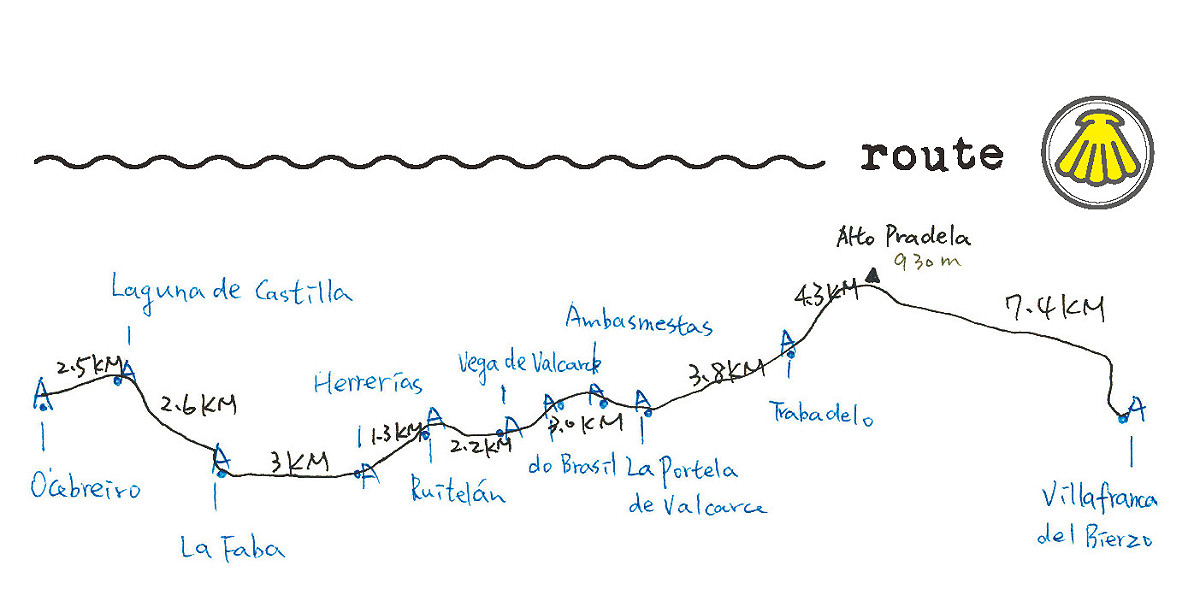 route
Alto Pradela
930m
Laguna de Castilla
4.3KM
7.4KM
Ambasmestas
2.5KM
Vega de Valcarce
Herrerías
3.8KM
2.6KM
Trabadelo
1.3KM
2.2KM
3.0KM
3KM
do Brasil
La Portela
de Valcarce
O'cebreiro
Ruitelán
Villafranca
del Bierzo
La Faba